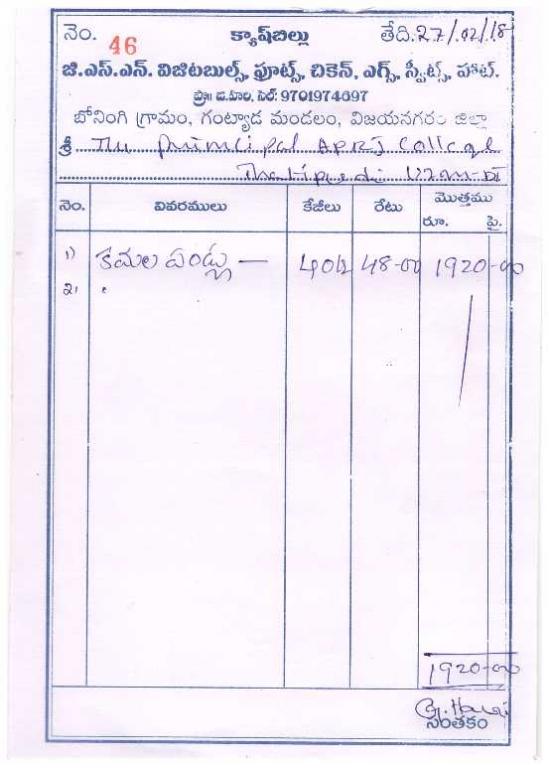 నెం. 46 క్యాష్‌బిల్లు తేది.27/02/18
జి.ఎస్.ఎన్. విజిటబుల్స్, ఫ్రూట్స్, చికెన్, ఎగ్స్, స్వీట్స్, హాట్.
ప్రొ॥ డ.హరి, సెల్: 9701974697
బోనింగి గ్రామం, గంట్యాడ మండలం, విజయనగరం జిల్లా
శ్రీ The principal APRJ College
Thatipudi Vzm-Dt
నెం. వివరములు కేజీలు రేటు మొత్తము
రూ. పై.
1) కమల పండ్లు — 40k 48-00 1920-00
2)
1920-00
G. Hari
సంతకం